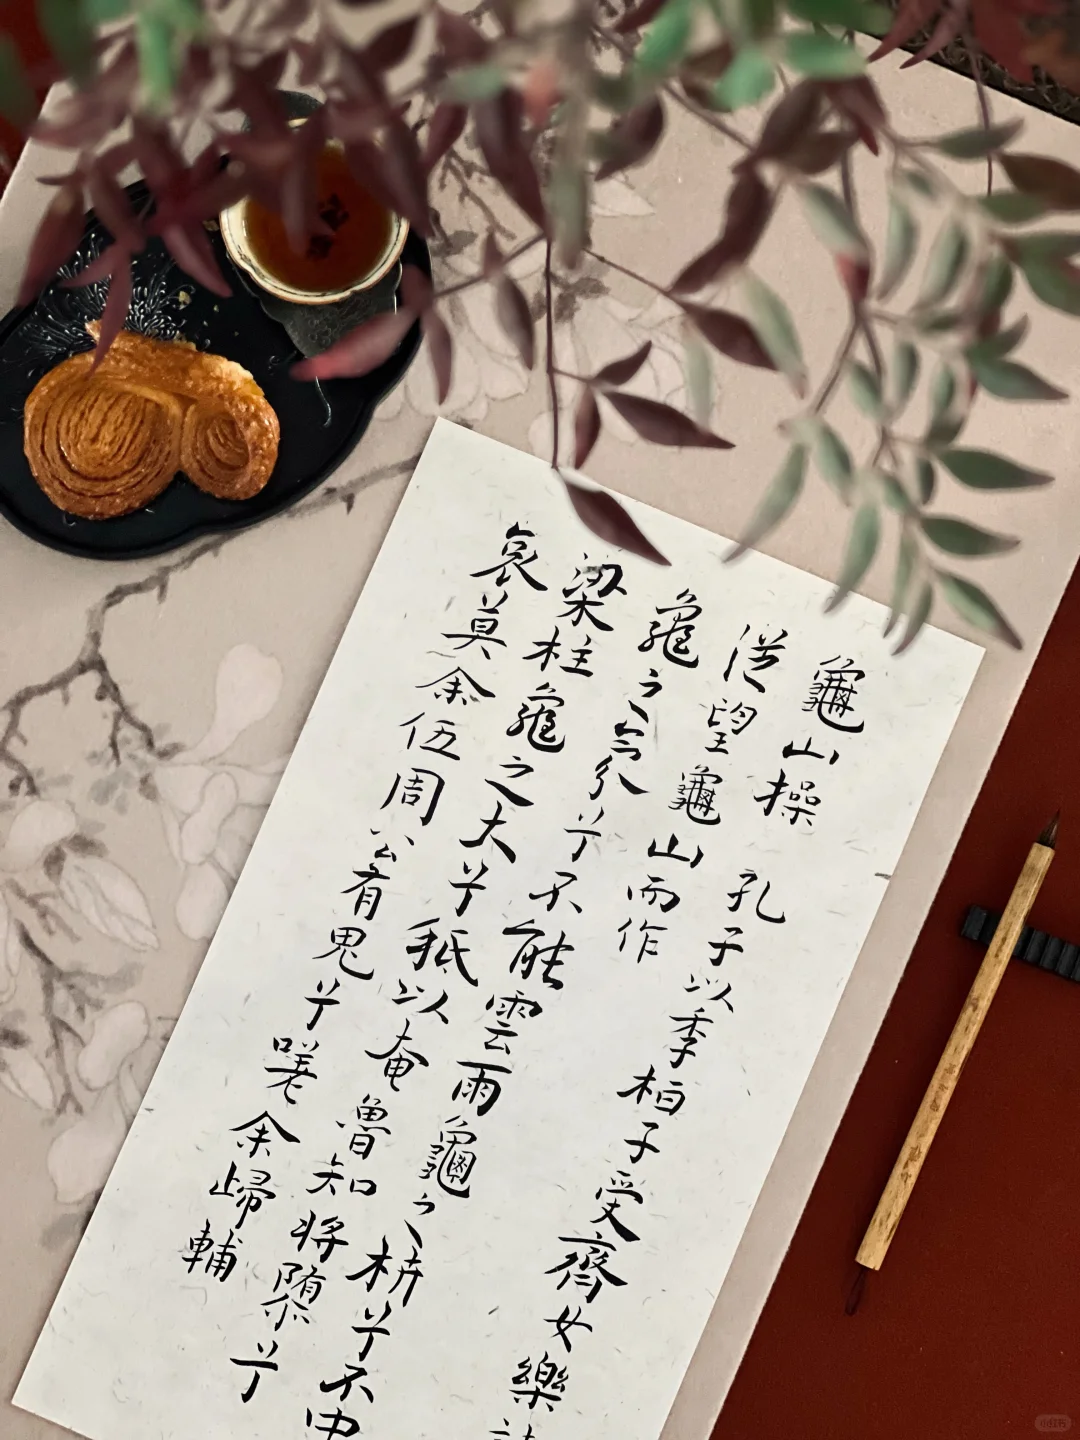 龜山操 孔子以季桓子受齊女樂
從望龜山而作
龜之氛兮不能雲雨龜之枿兮不中
梁柱龜之大兮秖以奄魯知將隳兮
哀莫余伍周公有鬼兮嗟余歸輔